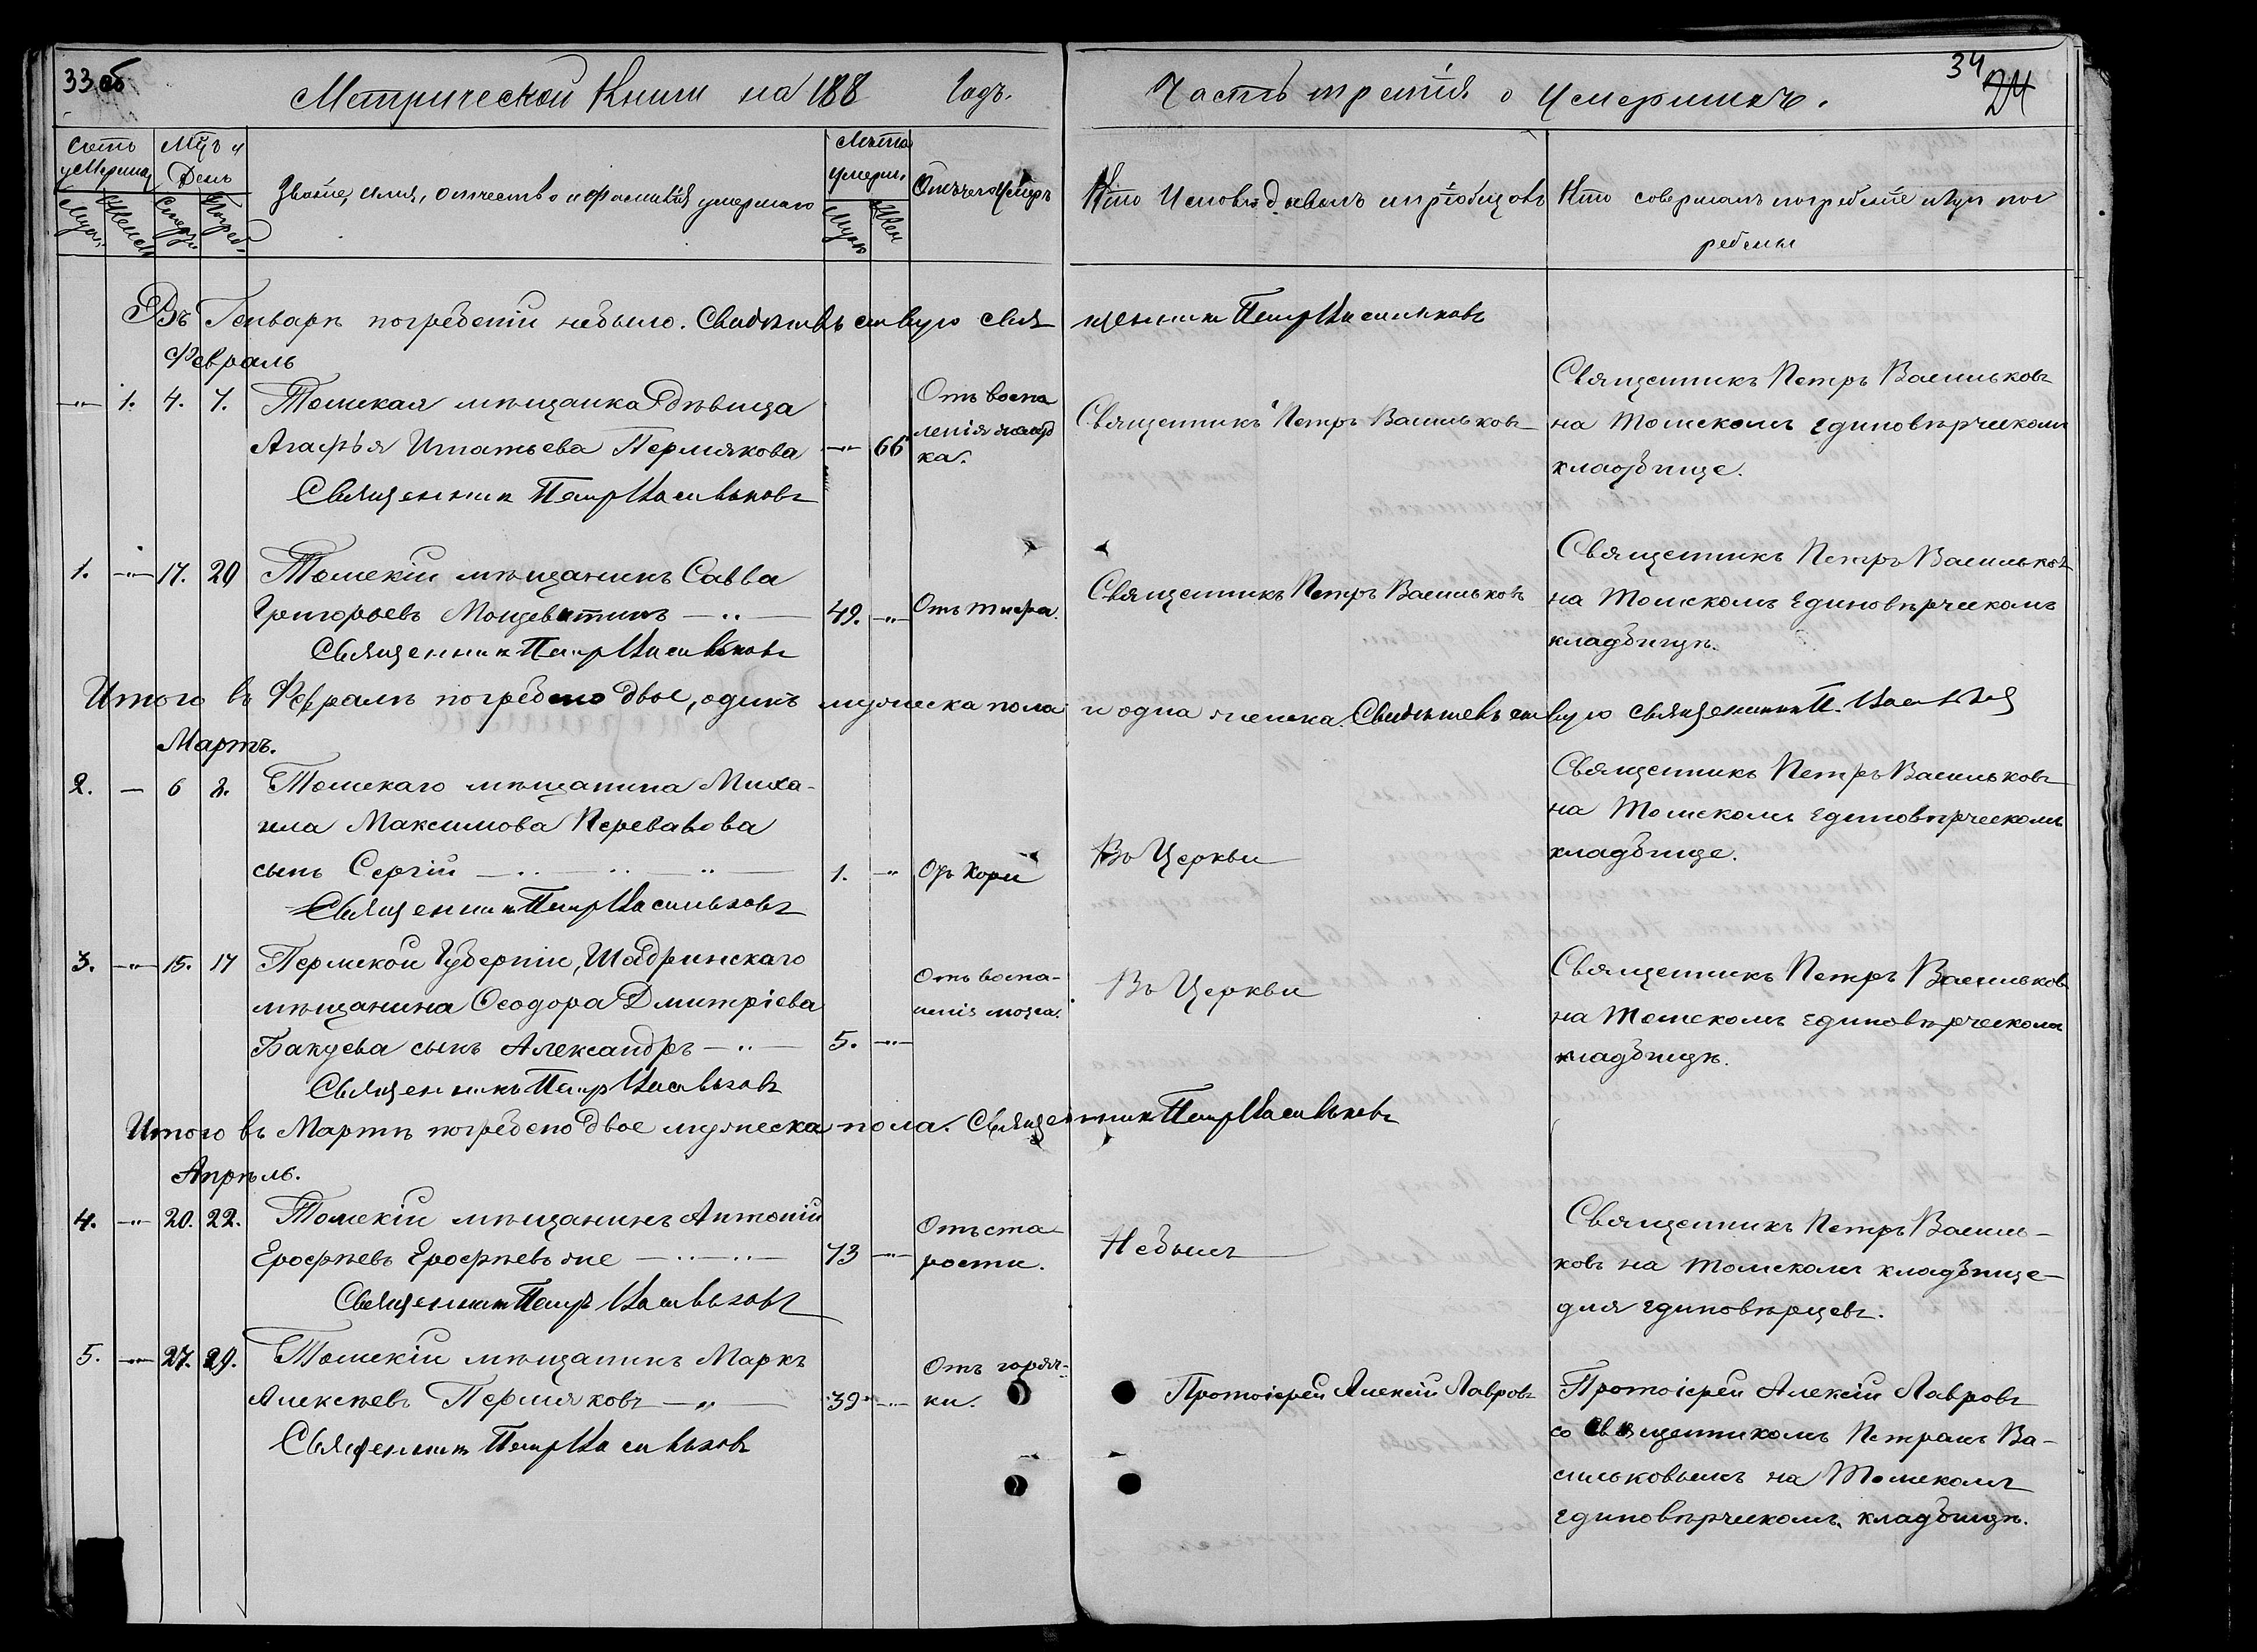 33 об
Метрической Книги на 188 Годъ.
Часть третія о Умершихъ.
34
24
Счетъ умершихъ
Муж.
Женск
Мѣц. и День
Смерти
Погреб.
Званіе, имя, отчество и фамилія умершаго
Лѣта умерш.
Муж
Жен
Отъ чего умеръ
Кто Исповѣдывалъ и пріобщалъ
Кто совершалъ погребеніе и гдѣ пог
ребены
Въ Генварѣ погребеній небыло. Свидѣтельствую свя
щенникъ Петръ Васильковъ
Февраль
-„- 1. 4. 7. Томская мѣщанка дѣвица
Агафья Игнатьева Пермякова -„- 66
Священникъ Петръ Васильковъ
Отъ воспа
ленія желуд
ка.
Священникъ Петръ Васильковъ
Священникъ Петръ Васильковъ
на Томскомъ Единовѣрческомъ
кладбище.
1. -„- 17. 20 Томскій мѣщанинъ Савва
Григорьевъ -„- 49. -„- Отъ тифа.
Священникъ Петръ Васильковъ
Священникъ Петръ Васильковъ
Священникъ Петръ Васильковъ
на Томскомъ Единовѣрческомъ
кладбищѣ.
Итого въ Февралѣ погребено двое, одинъ мужеска пола и одна женска. Свидѣтельствую священникъ П. Васильков
Мартъ.
2. - 6 8. Томскаго мѣщанина Миха-
ила Максимова Перевалова
сынъ Сергій -„- 1. -„- Отъ Кори
Священникъ Петръ Васильковъ
Въ Церкви
Священникъ Петръ Васильковъ
на Томскомъ Единовѣрческомъ
кладбище.
3. -„- 15. 17 Пермской Губерніи, Шадринскаго
мѣщанина Ѳеодора Дмитріева
сынъ Александръ -„- 5. -„-
Священникъ Петръ Васильковъ
Отъ воспа-
ленія мозга.
Въ Церкви
Священникъ Петръ Васильковъ
на Томскомъ Единовѣрческомъ
кладбищѣ.
Итого въ Мартѣ погребено двое мужеска пола. Священникъ Петръ Васильковъ
Апрѣль.
4. -„- 20. 22. Томскій мѣщанинъ Антоній
Ерофѣевъ Ерофѣевъ же -„- 73 -„-
Священникъ Петръ Васильковъ
Отъ ста
рости.
Небылъ
Священникъ Петръ Василь-
ковъ на Томскомъ кладбище
для Единовѣрцевъ.
5. -„- 27. 29. Томскій мѣщанинъ Маркъ
Алексѣевъ Пермяковъ -„- 39 -„-
Священникъ Петръ Васильковъ
Отъ горяч-
ки.
Протоіерей Алексій Лавровъ
Протоіерей Алексій Лавровъ
со священникомъ Петромъ Ва-
сильковымъ на Томскомъ
Единовѣрческомъ кладбищѣ.